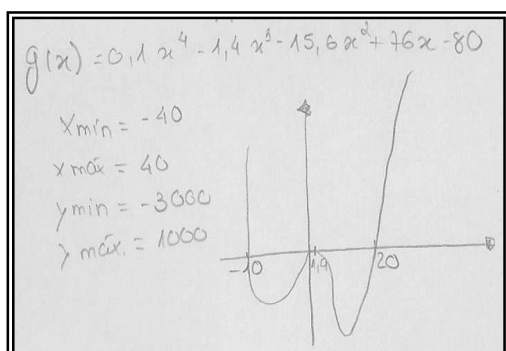 g(x) = 0,1 x⁴ - 1,4 x³ - 15,6x² + 76x - 80
xmín = -40
xmáx = 40
ymin = -3000
ymáx. = 1000
-10 1,9 20